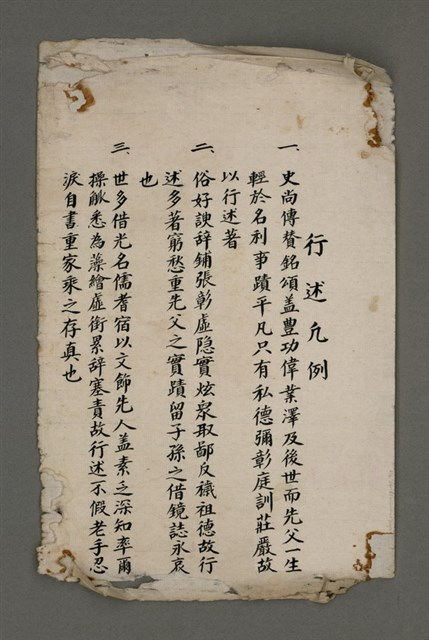 行述凡例
一、史尚傳贊銘頌盖豐功偉業澤及後世而先父一生
輕於名利事蹟平凡只有私德彌彰庭訓莊嚴故
以行述著
二、俗好諛辞鋪張彰虛隐實炫衆取鄙反禨祖德故行
述多著窮愁重先父之實蹟留子孫之借鏡誌永哀
也
三、世多借光名儒耆宿以文飾先人盖素乏深知率爾
操觚悉為藻繪虛銜累辞塞責故行述不假老手忍
淚自書重家乘之存真也